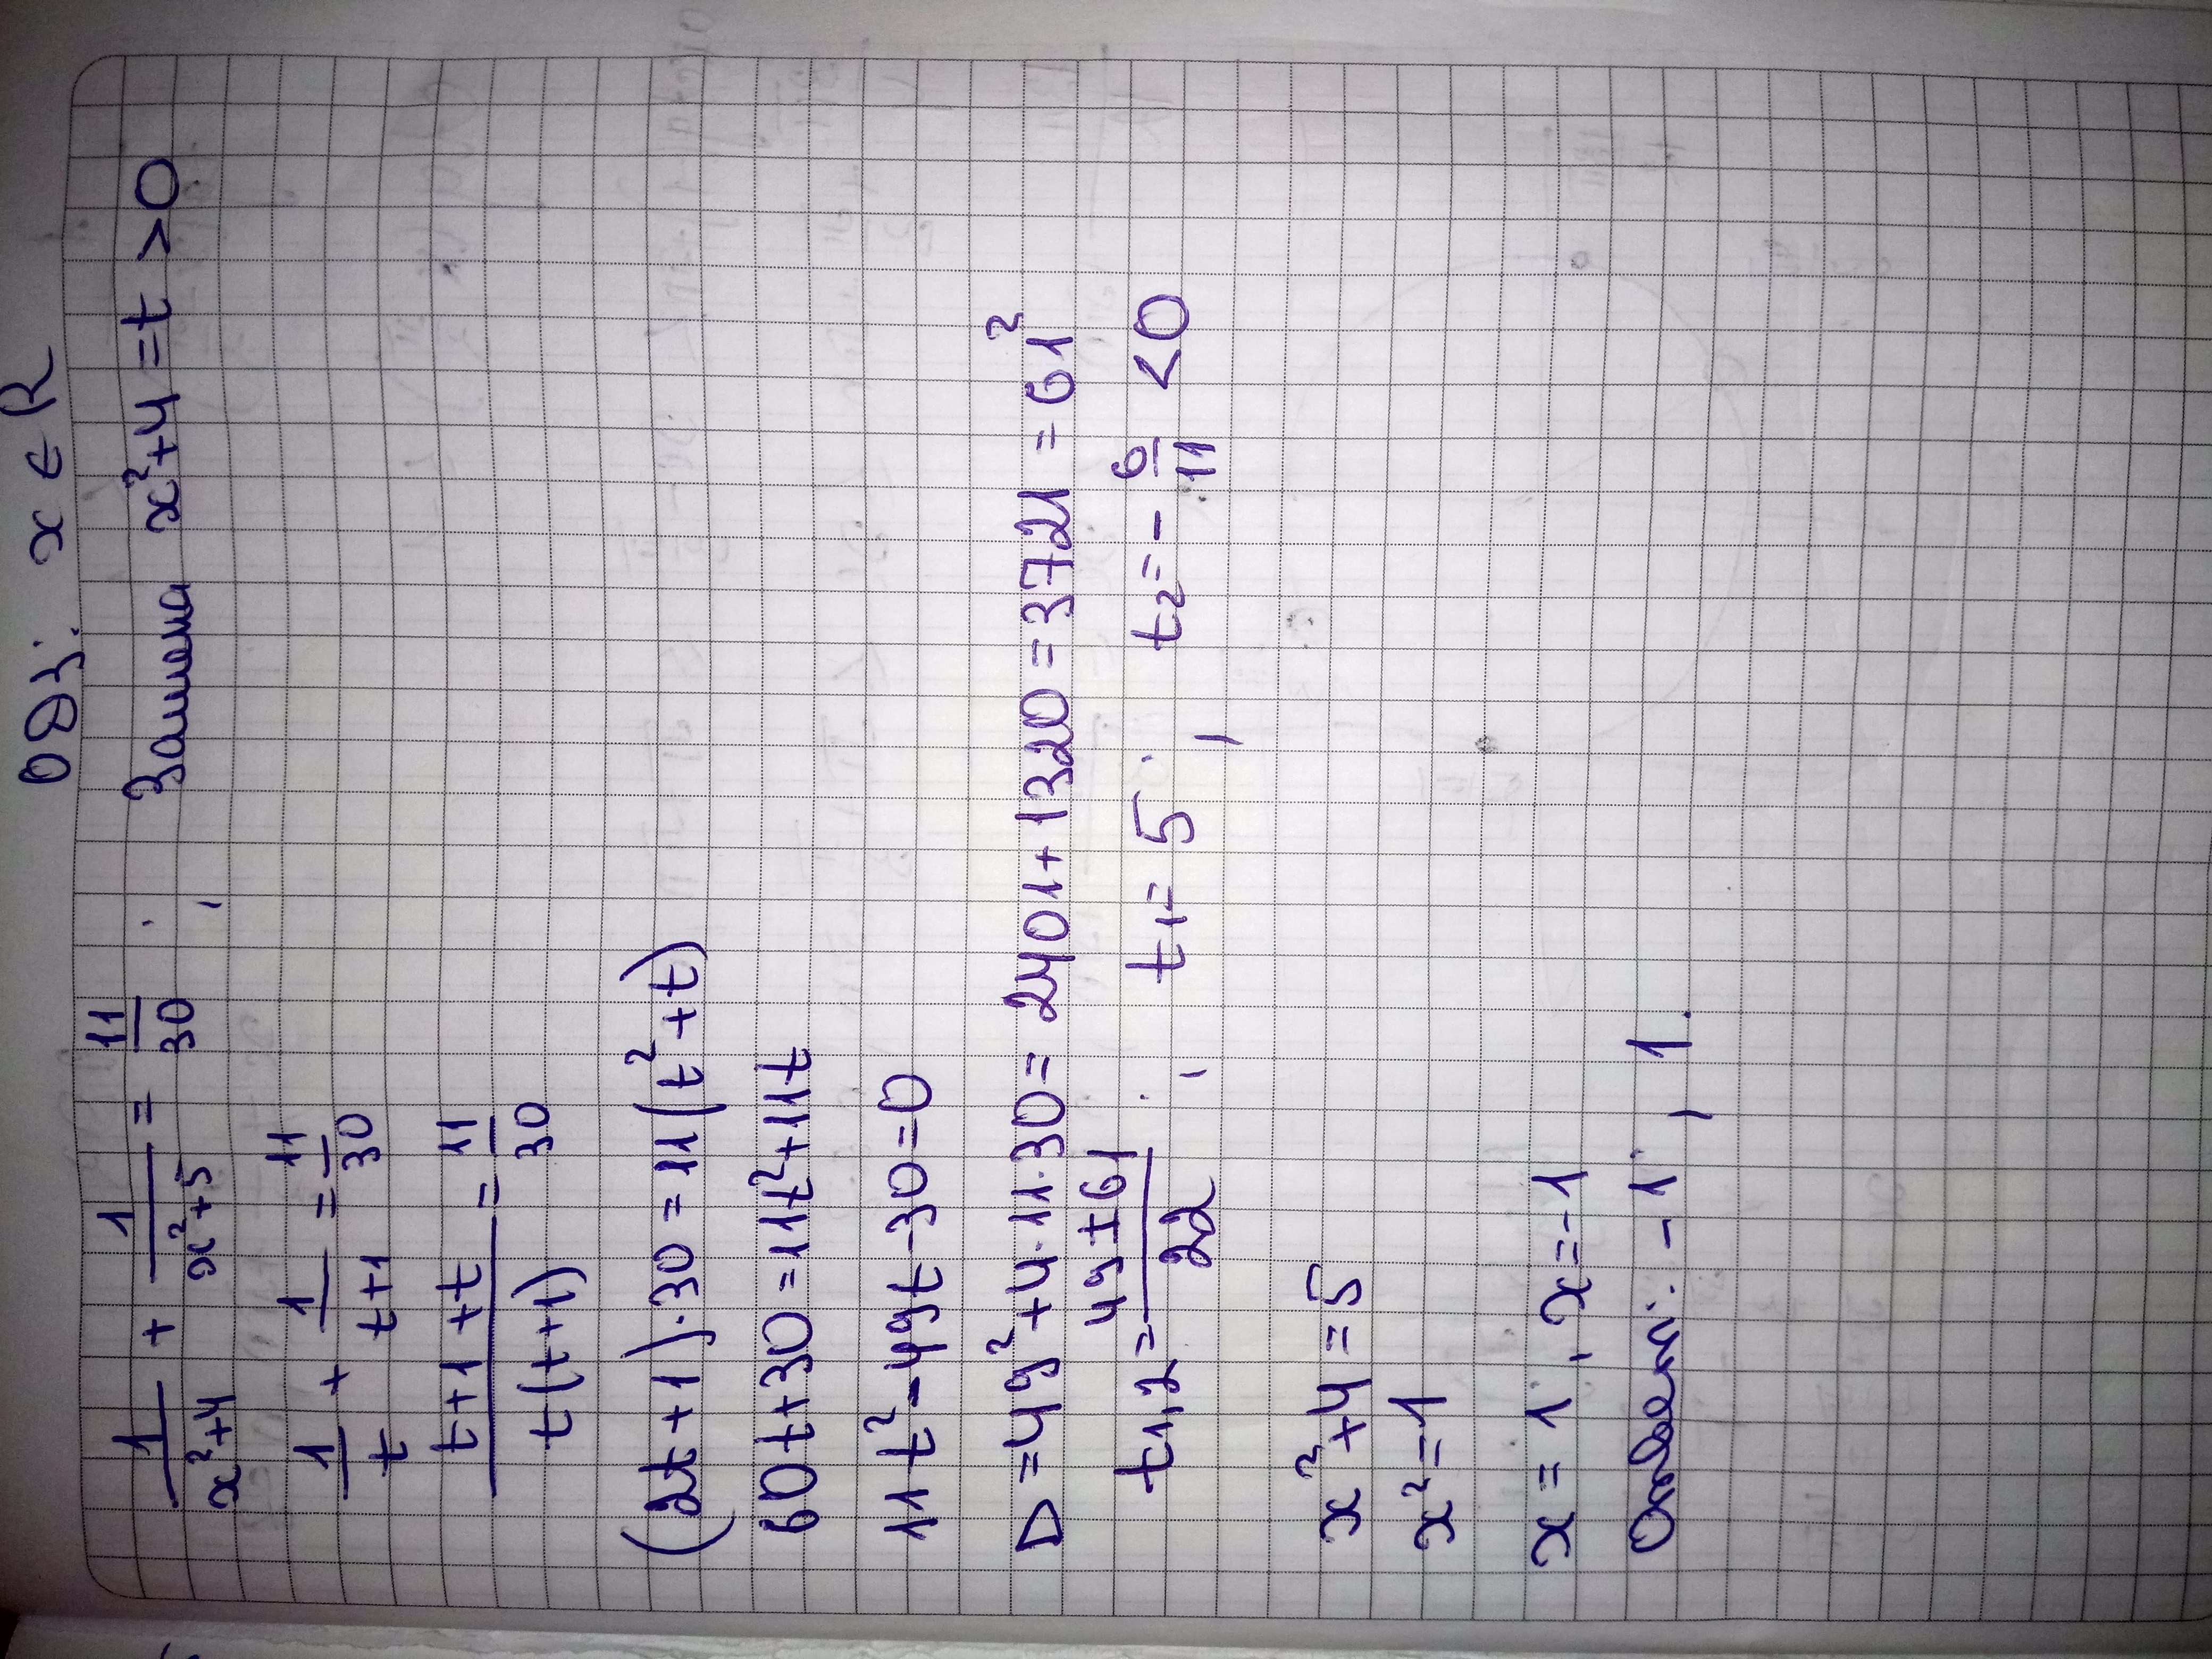 ОДЗ: x ∈ R
1/(x²+4) + 1/(x²+5) = 11/30 ; Замена x²+4 = t > 0
1/t + 1/(t+1) = 11/30
(t+1+t)/(t(t+1)) = 11/30
(2t+1)·30 = 11(t²+t)
60t+30 = 11t²+11t
11t²-49t-30=0
D = 49²+4·11·30 = 2401+1320 = 3721 = 61²
t1,2 = (49±61)/22 ; t1 = 5 ; t2 = -6/11 < 0
x²+4 = 5
x² = 1
x = 1 , x = -1
Ответ: -1 ; 1.